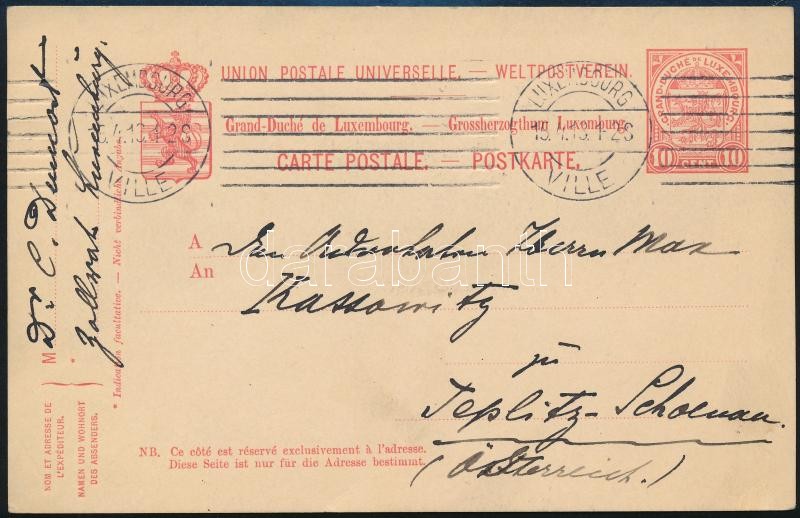 UNION POSTALE UNIVERSELLE. — WELTPOSTVEREIN.
Grand-Duché de Luxembourg. — Grossherzogthum Luxemburg.
CARTE POSTALE. — POSTKARTE.
GRAND-DUCHÉ DE LUXEMBOURG
10 CENT. 10
LUXEMBOURG
VILLE
LUXEMBOURG
15.4.13.1-2S
VILLE
A
An
Herrn Max
Kassowitz
zu
Teplitz-Schoenau.
(Österreich.)
darabanth
NB. Ce côté est réservé exclusivement à l'adresse.
Diese Seite ist nur für die Adresse bestimmt.
M
Dr. C. Dumont
Zollrath Luxemburg.
* Indication facultative. — Nicht verbindliche Angabe.
NOM ET ADRESSE DE
L'EXPÉDITEUR.
NAMEN UND WOHNORT
DES ABSENDERS.